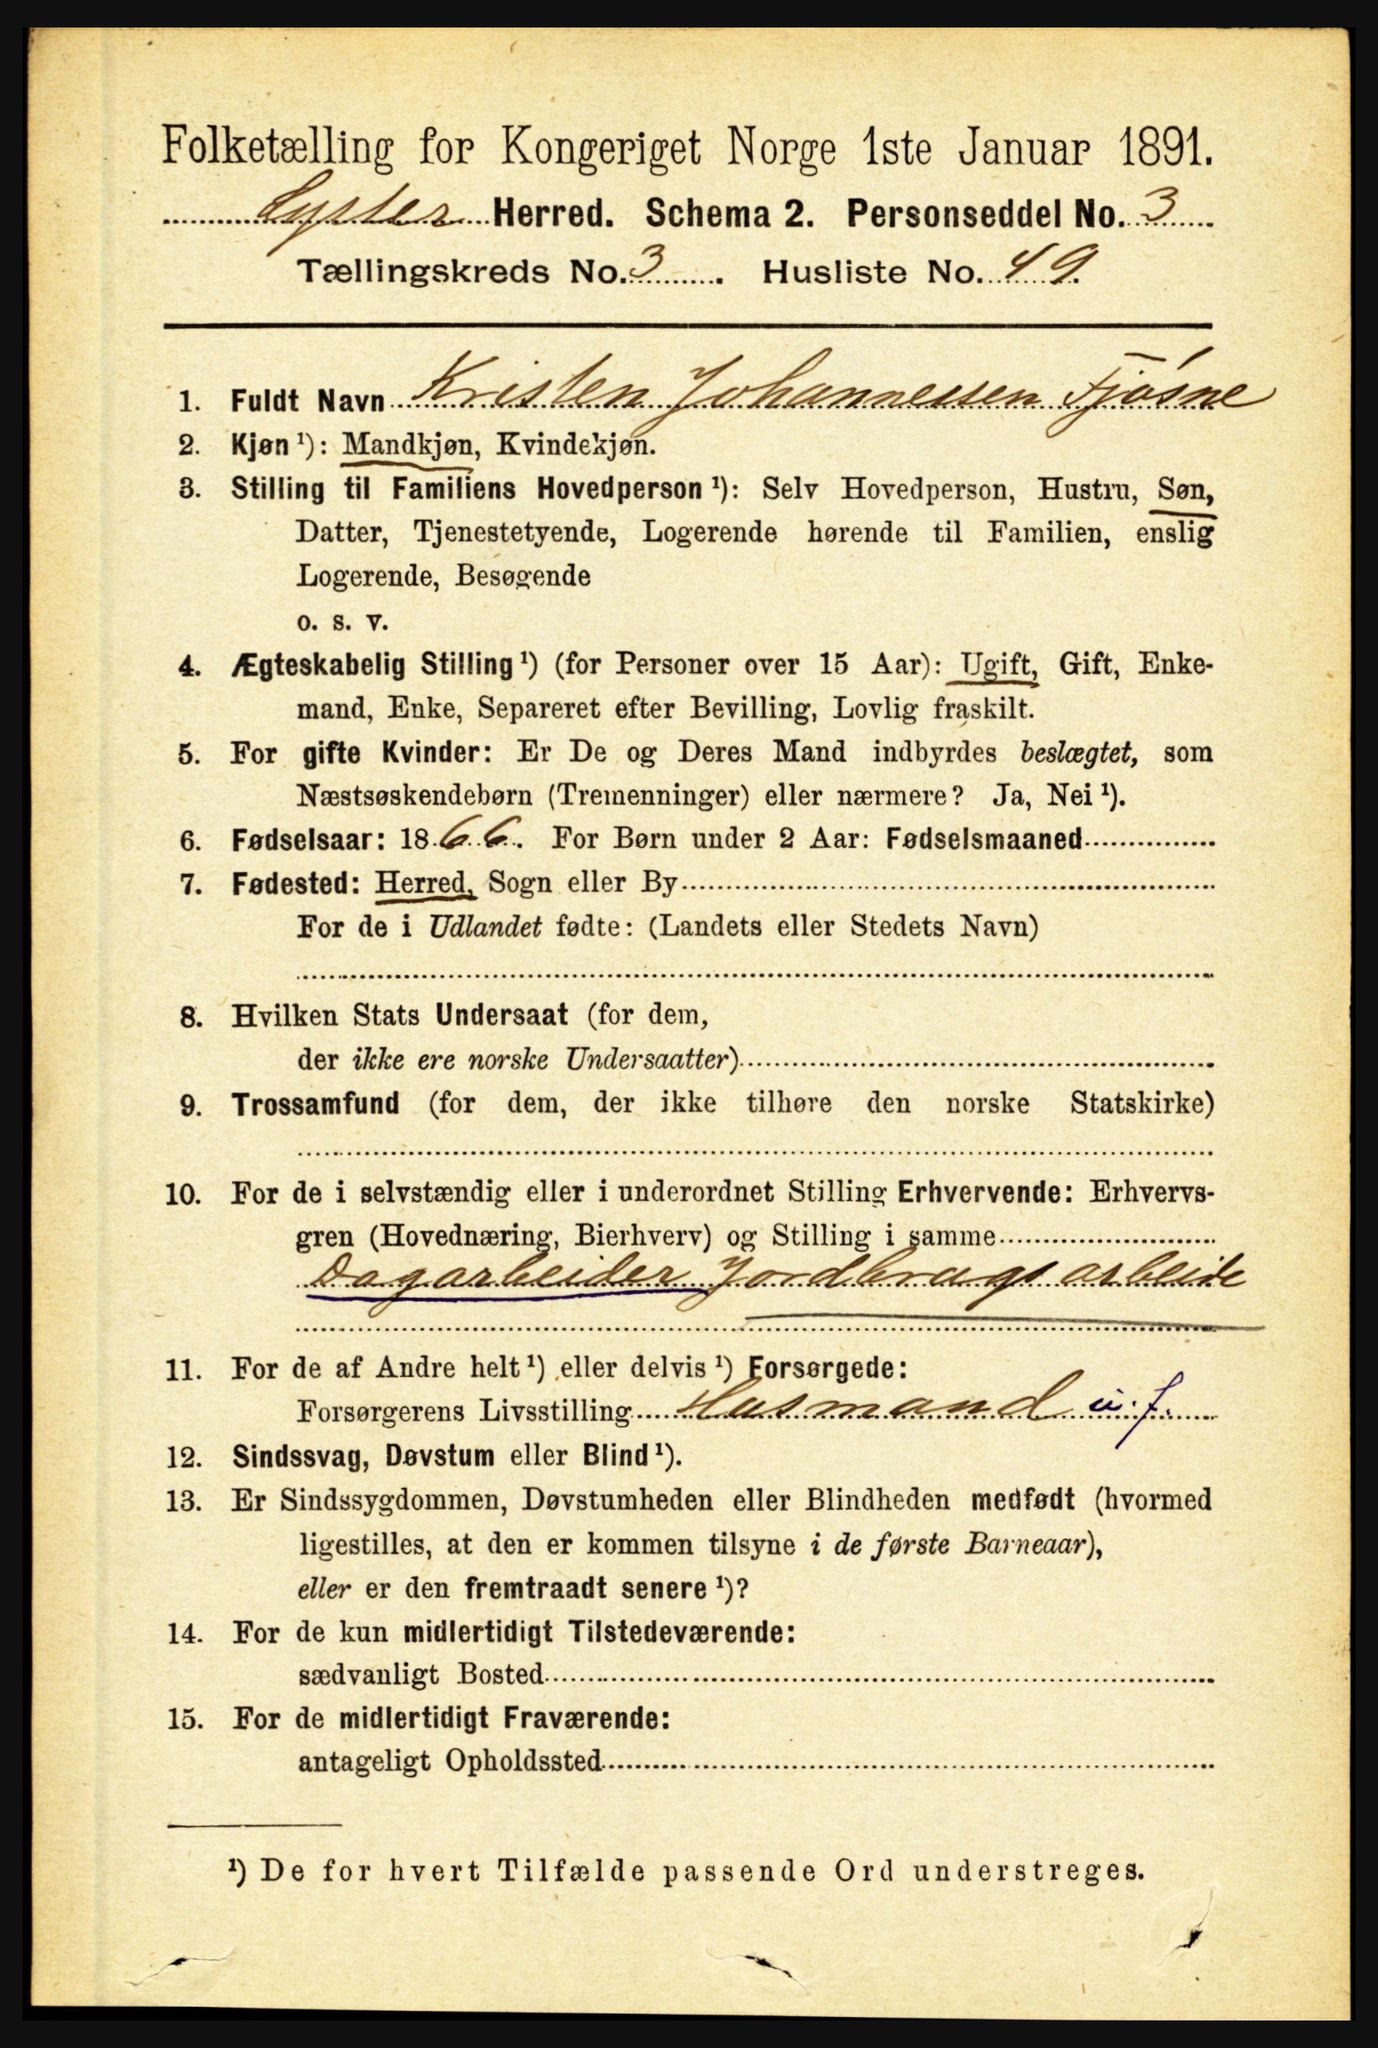 Folketælling for Kongeriget Norge 1ste Januar 1891.
Lyster Herred. Schema 2. Personseddel No. 3
Tællingskreds No. 3. Husliste No. 49.
1. Fuldt Navn Kristen Johannessen Fjøsne
2. Kjøn ¹): Mandkjøn, Kvindekjøn.
3. Stilling til Familiens Hovedperson ¹): Selv Hovedperson, Hustru, Søn,
Datter, Tjenestetyende, Logerende hørende til Familien, enslig
Logerende, Besøgende
o. s. v.
4. Ægteskabelig Stilling ¹) (for Personer over 15 Aar): Ugift, Gift, Enke-
mand, Enke, Separeret efter Bevilling, Lovlig fraskilt.
5. For gifte Kvinder: Er De og Deres Mand indbyrdes beslægtet, som
Næstsøskendebørn (Tremenninger) eller nærmere? Ja, Nei ¹).
6. Fødselsaar: 1866. For Børn under 2 Aar: Fødselsmaaned
7. Fødested: Herred, Sogn eller By
For de i Udlandet fødte: (Landets eller Stedets Navn)
8. Hvilken Stats Undersaat (for dem,
der ikke ere norske Undersaatter)
9. Trossamfund (for dem, der ikke tilhøre den norske Statskirke)
10. For de i selvstændig eller i underordnet Stilling Erhvervende: Erhvervs-
gren (Hovednæring, Bierhverv) og Stilling i samme
Dagarbeider Jordbrugsarbeide
11. For de af Andre helt ¹) eller delvis ¹) Forsørgede:
Forsørgerens Livsstilling Husmand u. J.
12. Sindssvag, Døvstum eller Blind ¹).
13. Er Sindssygdommen, Døvstumheden eller Blindheden medfødt (hvormed
ligestilles, at den er kommen tilsyne i de første Barneaar),
eller er den fremtraadt senere ¹)?
14. For de kun midlertidigt Tilstedeværende:
sædvanligt Bosted
15. For de midlertidigt Fraværende:
antageligt Opholdssted
¹) De for hvert Tilfælde passende Ord understreges.